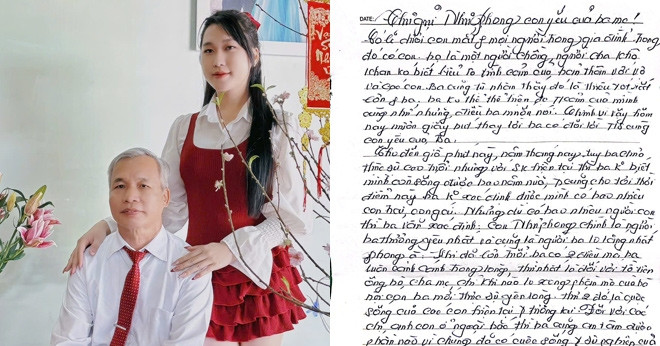 DATE:
Chị gửi Nhi phong con yêu của ba mẹ!
Có lẽ dưới con mắt of mọi người trong gia đình trong
đó có con ba là một người chồng, người cha khô
khan ko biết biểu lộ tình cảm của bản thân với vợ
và các con. Ba cũng tự nhận thấy đó là thiếu sót rất
lớn of ba. ba ko thể thể hiện đc tình cảm của mình
cũng như những điều ba muốn nói. Chính vì vậy hôm
nay mượn giấy bút thay lời ba có đôi lời tâm sự cùng
con yêu của Ba.
đến giờ phút này, năm tháng này tuy ba chưa
thực sự cao tuổi nhưng với sk hiện tại thì ba k biết
mình còn sống được bao năm nữa, cũng cho tới thời
điểm này ba k xác định được mình có bao nhiêu
con trai, con gái. Nhưng dù có bao nhiêu người con
thì ba vẫn xác định: Con Nhi phong chính là người
ba thương yêu nhất và cũng là người ba lo lắng nhất
phong ạ. ở cái tuổi ba có 2 điều mà ba
luôn canh cánh trong lòng, thứ nhất là đối với tổ tiên
ông bà, cha mẹ, chỉ khi nào lo xong phần mộ của bà
nội con ba mới thực sự yên lòng. thứ 2 đó là cuộc
sống của các con hiện tại Đối với các
chị, anh con ở ngoài bắc thì ba cũng an tâm được
phần nào vì chúng đã có cuộc sống sự nghiệp của